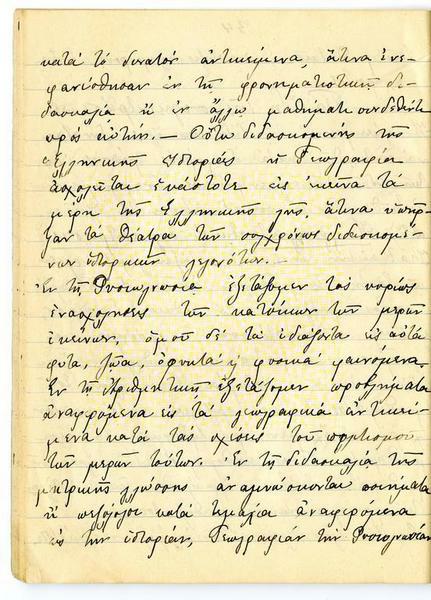 κατά τό δυνατόν ἀντικείμενα, ἅτινα ἐνε-
φανίσθησαν ἐν τῇ φρονηματιστικῇ δι-
δασκαλίᾳ ἤ ἐν ἄλλῳ μαθήματι συνδεθέντι
πρός αὐτήν. — Οὕτω διδασκομένης τῆς
Ἑλληνικῆς Ἱστορίας ἡ Γεωγραφία
ἀσχολεῖται ἑκάστοτε εἰς ἐκεῖνα τά
μέρη τῆς Ἑλληνικῆς γῆς, ἅτινα ὑπῆρ-
ξαν τά θέατρα τῶν συγχρόνως διδασκομέ-
νων ἱστορικῶν γεγονότων. —
Ἐν τῇ Φυσιογνωσίᾳ ἐξετάζομεν τάς κυρίας
ἐνασχολήσεις τῶν κατοίκων τῶν μερῶν
ἐκείνων, ὁμοῦ δέ τά ἰδιάζοντα εἰς αὐτά
φυτά, ζῶα, ὀρυκτά ἤ φυσικά φαινόμενα.
Ἐν τῇ Ἀριθμητικῇ ἐξετάζομεν προβλήματα
ἀναφερόμενα εἰς τά γεωγραφικά ἀντικεί-
μενα κατά τάς σχέσεις τοῦ
τῶν μερῶν τούτων. Ἐν τῇ διδασκαλίᾳ τῆς
μητρικῆς γλώσσης ἀναγινώσκονται ποιήματα
ἤ πεζόλογα κατά τεμάχια ἀναφερόμενα
εἰς τήν ἱστορίαν, Γεωγραφίαν τήν Φυσιογνωσίαν